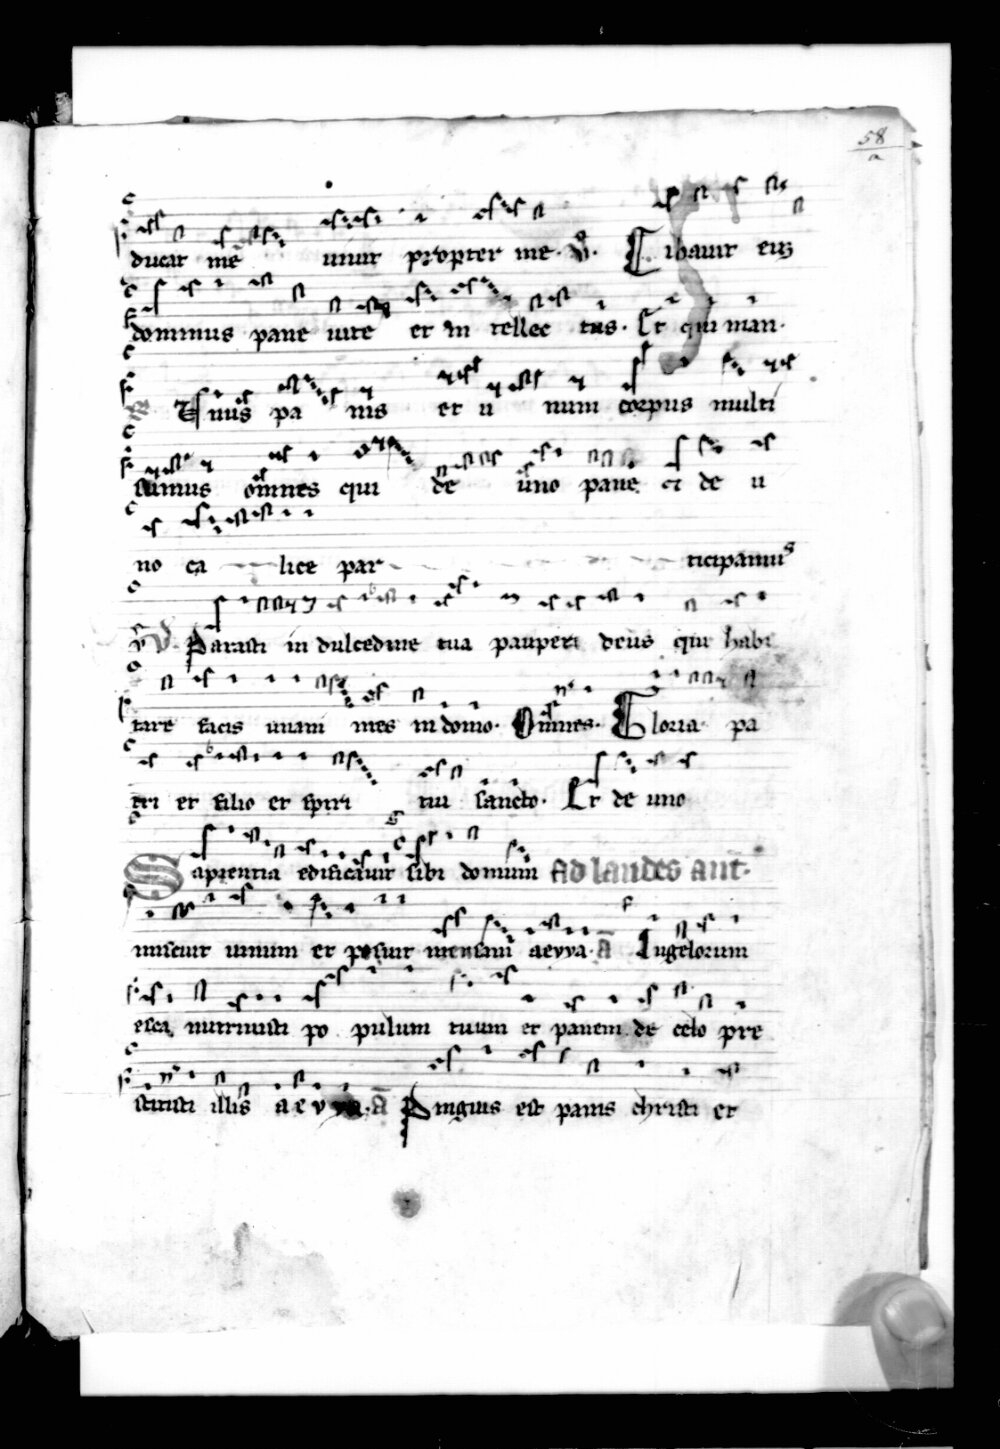 58
a
ducat me vivit propter me. V. Cibavit eum
dominus pane vite et in tellec tus. Et qui man.
Unus pa nis et u num corpus multi
sumus omnes qui de uno pane et de u
no ca lice par ticipamus
V. Parasti in dulcedine tua pauperi deus qui habi
tare facis unani mes in domo. Omnes. Gloria pa
tri et filio et spiri tui sancto. Et de uno
Sapientia edificavit sibi domum Ad laudes ant.
miscuit vinum et posuit mensam aevya. A Angelorum
esca nutrivisti po pulum tuum et panem de celo pre
stitisti illis a e v y a. A Pinguis est panis christi et